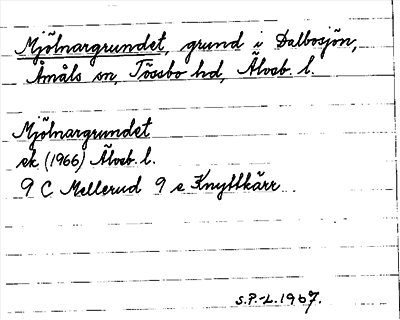 Mjölnargrundet, grund i Dalbosjön,
Åmåls sn, Tössbo hd, Älvsb. l.
Mjölnargrundet
ek (1966) Älvsb. l.
9 C Mellerud 9 e Knyttkärr
S.P.-L. 1967.